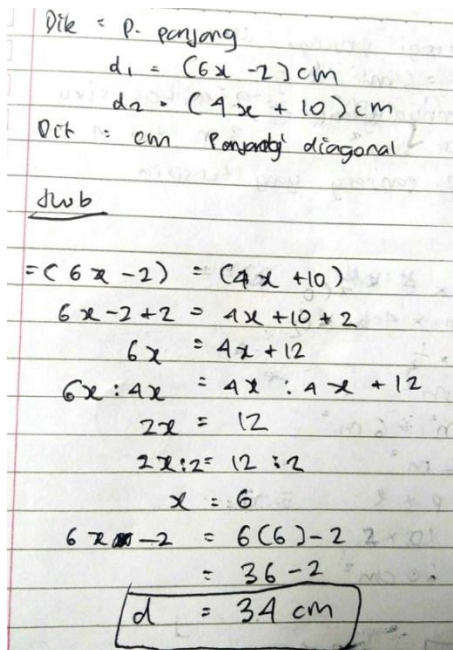 Dik = P. panjang
d1 = (6x - 2) cm
d2 = (4x + 10) cm
Dit = cm Panjang diagonal
Jwb
= (6x - 2) = (4x + 10)
6x - 2 + 2 = 4x + 10 + 2
6x = 4x + 12
6x : 4x = 4x : 4x + 12
2x = 12
2x : 2 = 12 : 2
x = 6
6x - 2 = 6(6) - 2
= 36 - 2
d = 34 cm